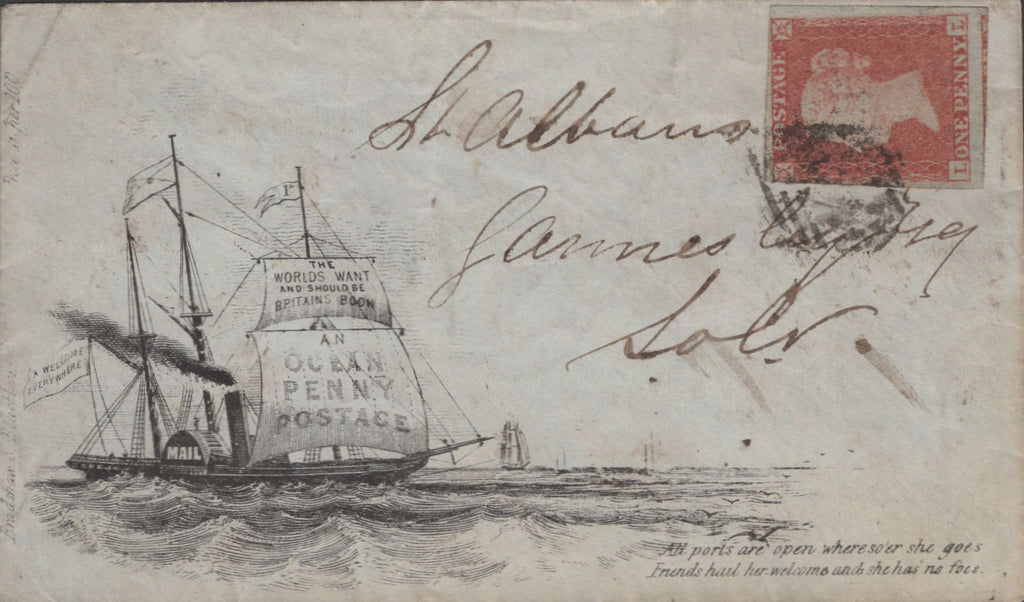 St Albans
Esq
Solr.
POSTAGE
ONE PENNY
L L
1d
THE
WORLDS WANT
AND SHOULD BE
BRITAINS BOON
AN
OCEAN
PENNY
POSTAGE
A WELCOME
EVERYWHERE
MAIL
All ports are open wheresoer she goes
Friends hail her welcome and she has no foes.